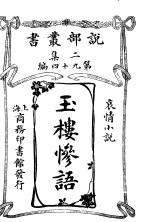 說部叢書
二集
第九十四編
哀情小說
玉樓慘語
上海商務印書館發行